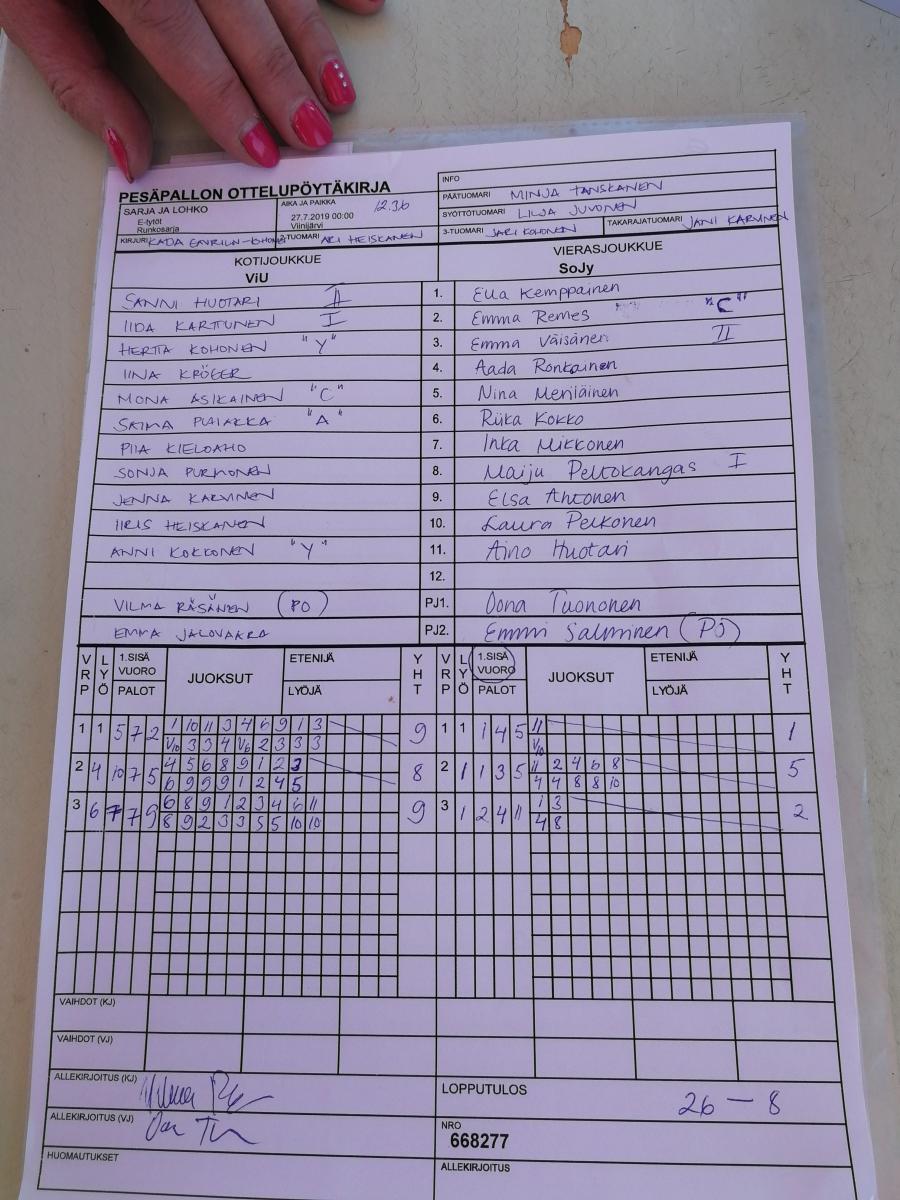 PESÄPALLON OTTELUPÖYTÄKIRJA
INFO
SARJA JA LOHKO
E-tytöt
Runkosarja
AIKA JA PAIKKA 12.36
27.7.2019 00:00
Viinijärvi
PÄÄTUOMARI MINJA TANSKANEN
SYÖTTÖTUOMARI LILJA JUVONEN
KIRJURI 2-TUOMARI ARI HEISKANEN
3-TUOMARI JARI KOHONEN TAKARAJATUOMARI JANI KARVINEN
KOTIJOUKKUE VIERASJOUKKUE
ViU SoJy
SANNI HUOTARI II 1. Eua Kemppainen
IIDA KARTTUNEN I 2. Emma Remes "C"
HERTTA KOHONEN "Y" 3. Emma Väisänen II
IINA KRÖGER 4. Aada Ronkainen
MONA ASIKAINEN "C" 5. Nina Meriläinen
SAIMA "A" 6. Riika Kokko
PIIA KIELOAHO 7. Inka Mikkonen
SONJA PURMONEN 8. Maiju Peltokangas I
JENNA KARVINEN 9. Elsa Ahtonen
IIRIS HEISKANEN 10. Laura Pelkonen
ANNI KOKKONEN "Y" 11. Aino Huotari
12.
VILMA RÄSÄNEN (PO) PJ1. Oona Tuononen
EMMA JALOVAARA PJ2. Emmi Salminen (PJ)
VRP LYÖ 1.SISÄ VUORO PALOT JUOKSUT ETENIJÄ LYÖJÄ YHT VRP LYÖ 1.SISÄ VUORO PALOT JUOKSUT ETENIJÄ LYÖJÄ YHT
1 1 5 7 2 1 10 11 3 4 6 9 1 3 9 1 1 1 4 5 11 1
V10 3 3 4 V6 2 3 3 3 V10
2 4 10 7 5 4 5 6 8 9 1 2 3 8 2 1 1 3 5 11 2 4 6 8 5
6 9 9 9 1 2 4 5 4 4 8 8 10
3 6 7 7 9 6 8 9 1 2 3 4 6 11 9 3 1 2 4 11 1 3 2
8 9 2 3 3 5 5 10 10 4 8
VAIHDOT (KJ)
VAIHDOT (VJ)
ALLEKIRJOITUS (KJ)
LOPPUTULOS 26 – 8
ALLEKIRJOITUS (VJ)
NRO
668277
HUOMAUTUKSET
ALLEKIRJOITUS